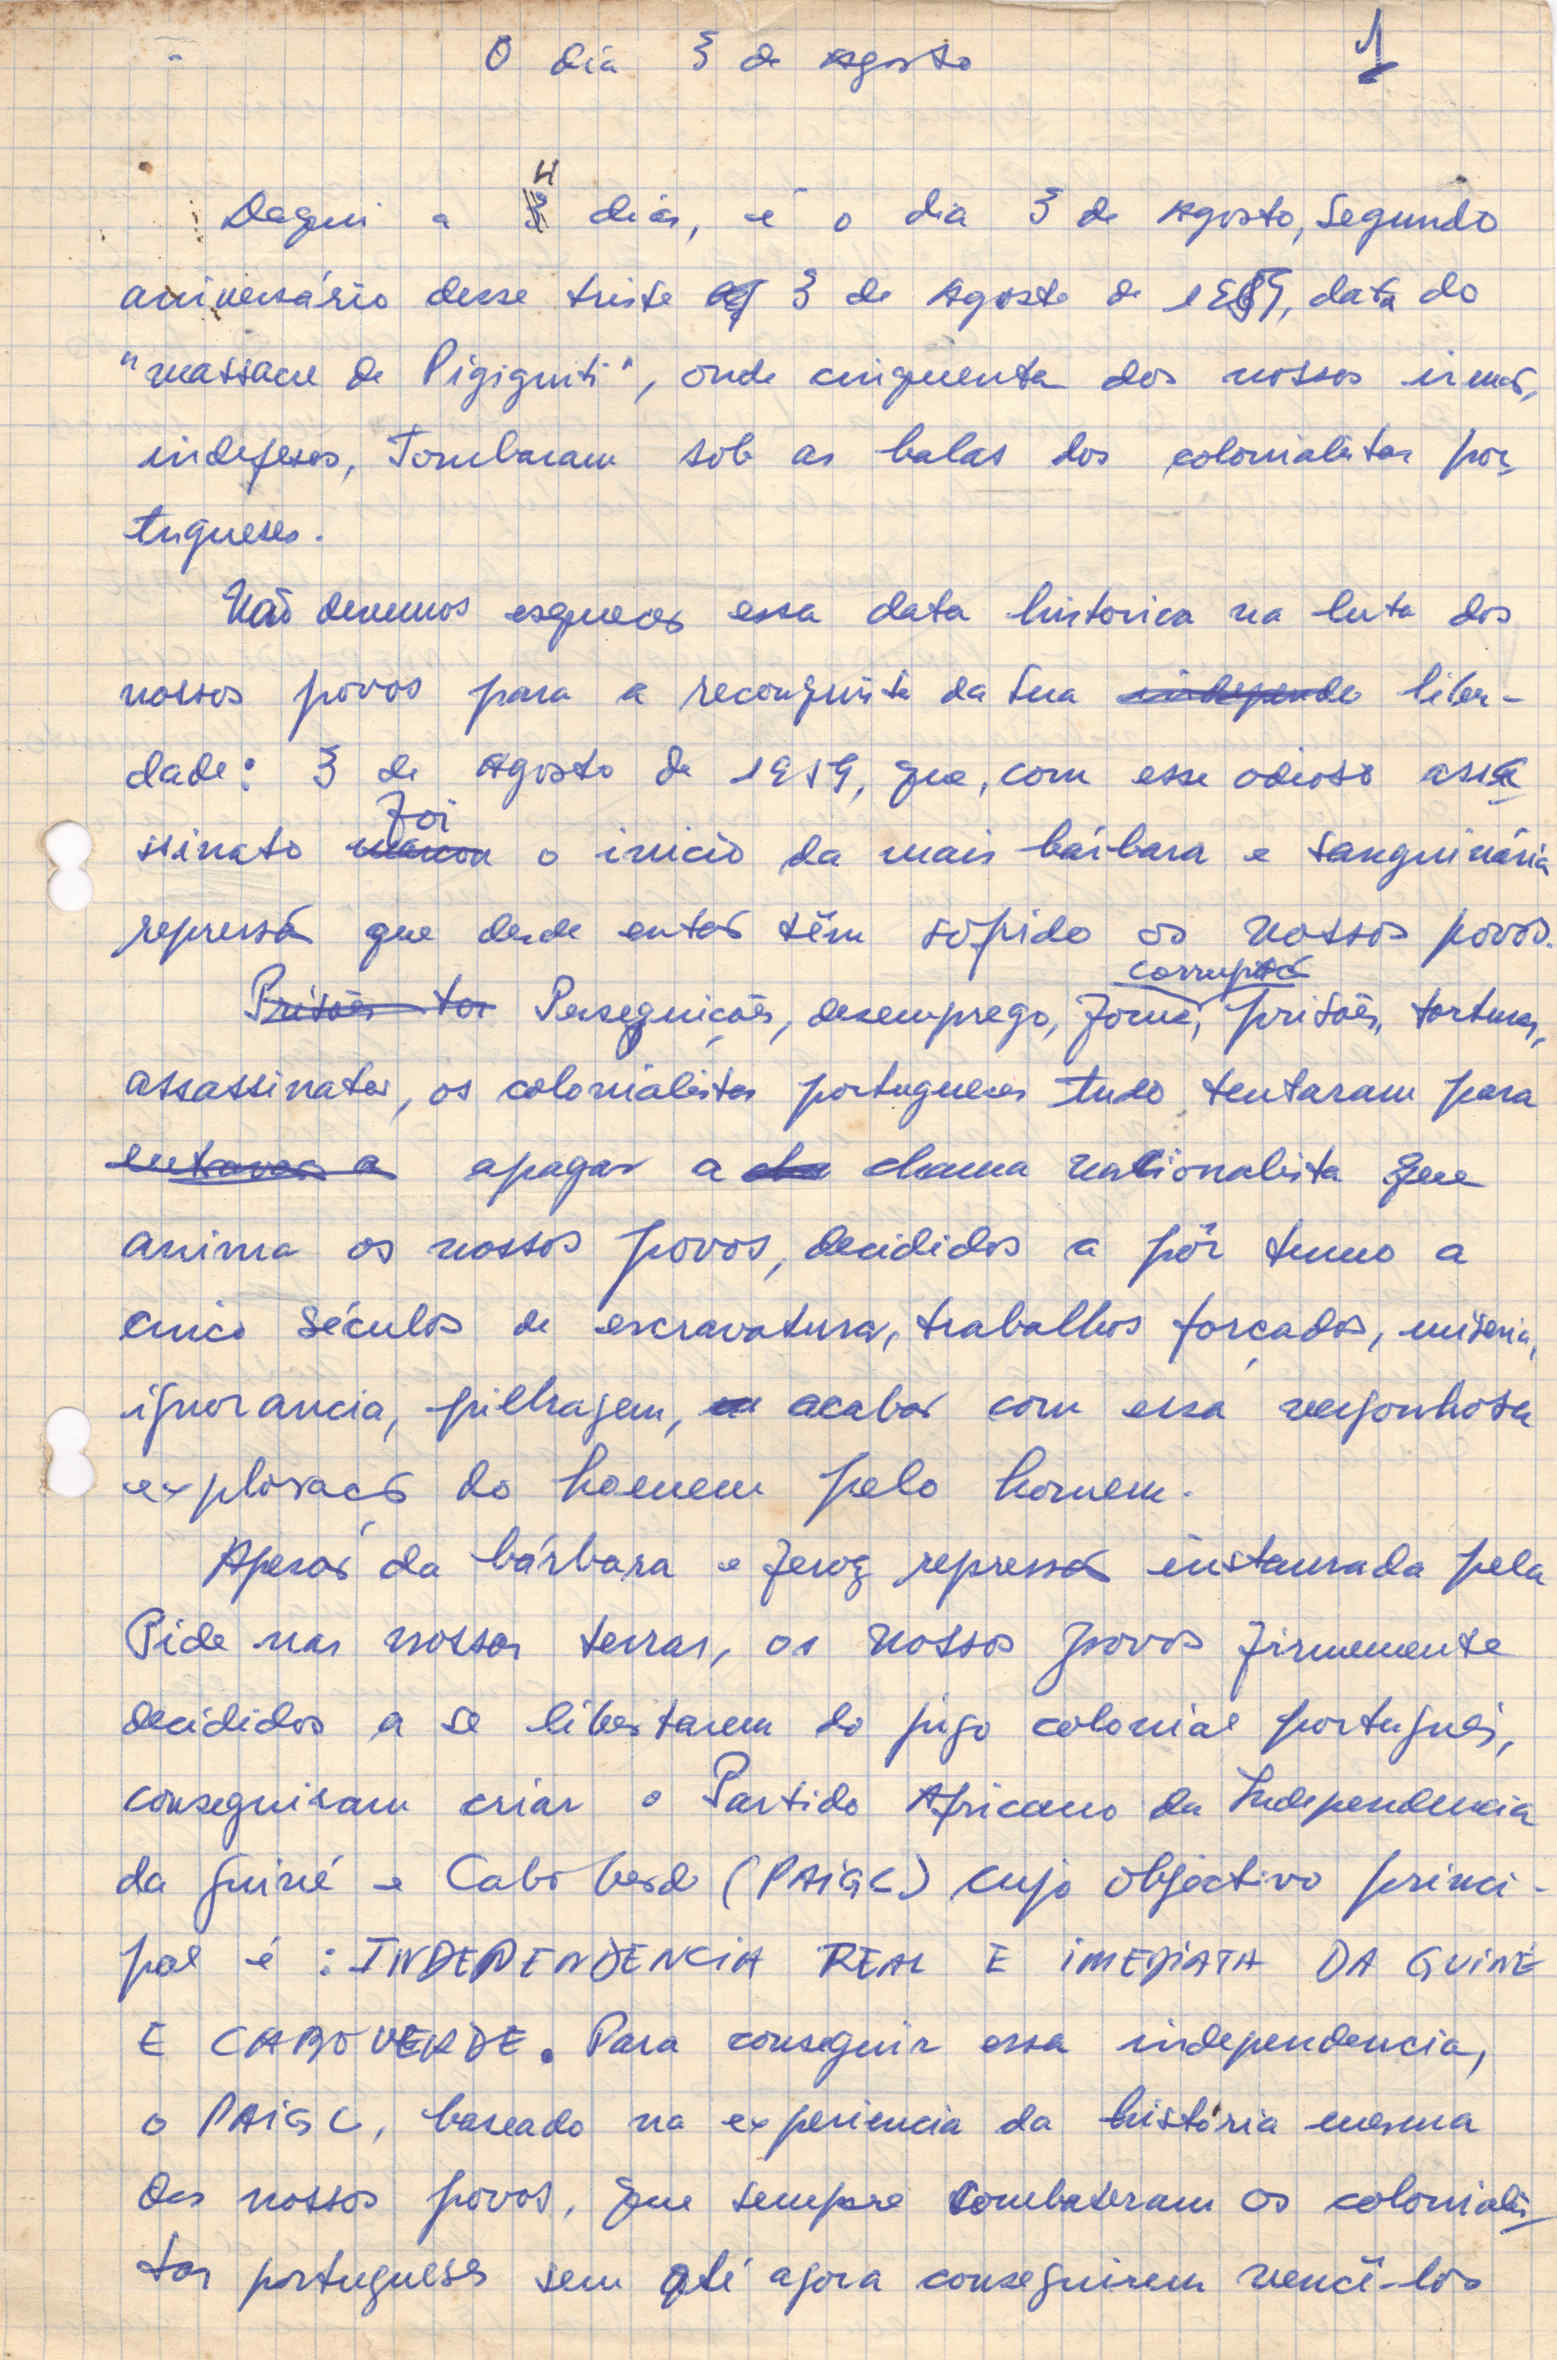 O dia 3 de Agosto
1
Daqui a 4 dias, é o dia 3 de Agosto, Segundo
aniversário desse triste 3 de Agosto de 1959, data do
"massacre de Pigiguiti", onde cinquenta dos nossos irmãos,
indefesos, Tombaram sob as balas dos colonialistas por
tugueses.
Não devemos esquecer essa data historica na luta dos
nossos povos para a reconquista da sua independe liber-
dade: 3 de Agosto de 1959, que, com esse odioso assa
ssinato marcou foi o inicio da mais bárbara e sanguinária
repressão que desde então têm sofrido os nossos povos.
Prisões tor Perseguições, desemprego, fome, corrupção prisões, torturas,
assassinatos, os colonialistas portugueses tudo tentaram para
entravar a apagar a cha chama nacionalista que
anima os nossos povos, decididos a pôr termo a
cinco séculos de escravatura, trabalhos forçados, miseria,
ignorancia, pilhagem, acabar com essa vergonhosa
exploração do homem pelo homem.
Apesar da bárbara e feroz repressão instaurada pela
Pide nas nossas terras, os nossos povos firmemente
decididos a se libertarem do jugo colonial português,
conseguiram criar o Partido Africano da Independencia
da Guiné e Cabo Verde (PAIGC) cujo objectivo princi-
pal é : INDEPENDENCIA REAL E IMEDIATA DA GUINÉ
E CABO VERDE. Para conseguir essa independencia,
o PAIGC, baseado na experiencia da história mesma
dos nossos povos, que sempre combateram os colonialis
tas portugueses sem até agora conseguirem vencê-los